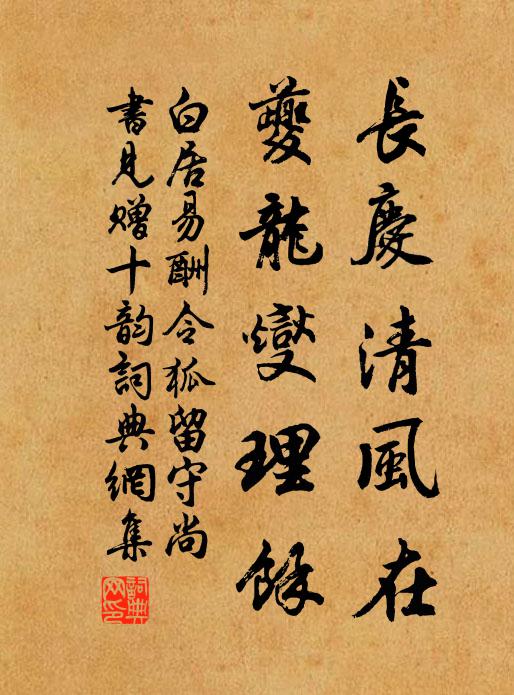 長慶清風在
夔龍燮理餘
白居易酬令狐留守尚
書見贈十韵詞典網集
詞典網印